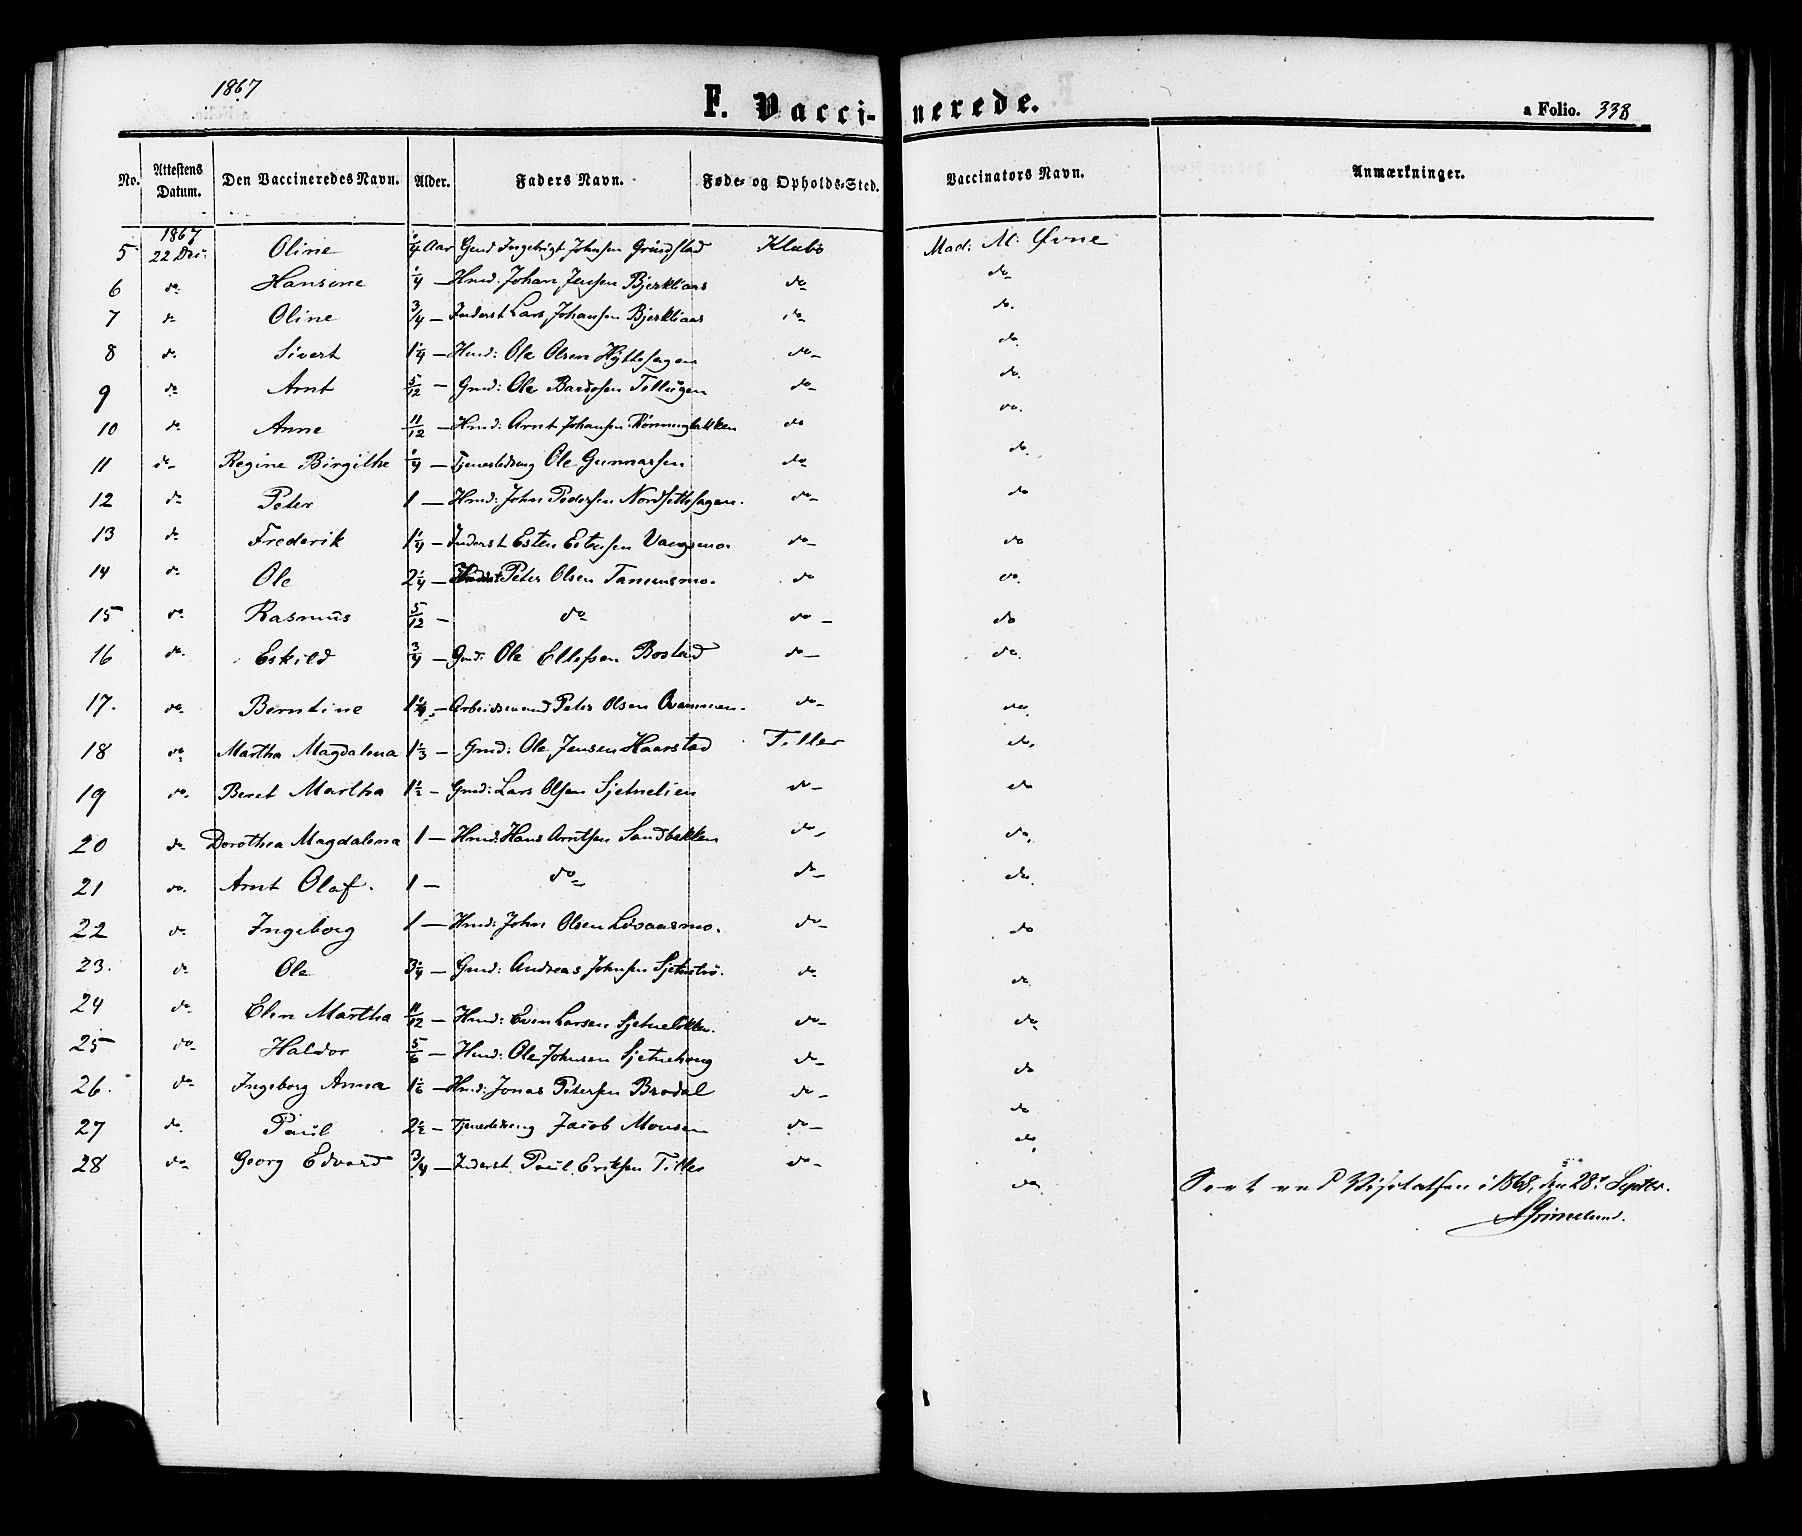 1867
F. Vaccinerede.
a Folio. 338
No. Attestens Datum. Den Vaccineredes Navn. Alder. Faders Navn. Føde- og Opholds-Sted. Vaccinators Navn. Anmærkninger.
5 1867 22 Dec: Oline 1/4 Aar Gmd Ingebrigt Johnsen Grundstad Klæbo Mad: M: Øvne
6 do Hansine 1/4 — Hmd: Johan Jensen Bjerkliaas do do
7 do Oline 3/4 — Inderst Lars Johansen Bjerkliaas do do.
8 do. Sivert 1 1/4 — Hmd: Ole Olsen Hyttesagen do — do.
9 do Arnt 5/12 — Gmd: Ole Bardosen Tellugen do — do.
10 do Anne 11/12 — Hmd: Arnt Johansen Rønningbakken do do.
11 do — Regine Birgithe 1/4 — Tjenestedreng Ole Gunnarsen do do.
12 do Peter 1 — Hmd: John Pedersen Nordsettesagen. do — do
13 do Frederik 1 1/4 — Inderst Esten Estensen Vangsmo. do — do
14 do Ole 2 1/4 — Peter Olsen Tanemsmo. do do.
15 do Rasmus 5/12 — do do — do
16 do. Eskild 3/4 — Gmd: Ole Ellefsen Bostad do — do.
17. do. Berntine 1 1/4 — Arbeidsmand Peter Olsen Qvammen. do — do.
18 do Martha Magdalena 1 1/3 — Gmd: Ole Jensen Haarstad Tiller do.
19 do. Beret Martha 1 1/2 — Gmd: Lars Olsen Sjetnelien do — do
20 do Dorothea Magdalena 1 — Hmd: Hans Arntsen Sandbakken do — do.
21 do. Arnt Olaf. 1 — do do — do.
22 do. Ingeborg 1 — Hmd: John Olsen Løvaasmo. do — do
23. do Ole 3 1/4 — Gmd: Andreas Johnsen do do.
24 do Elen Martha 11/12 — Hmd: Even Larsen do — do
25 do Haldor 5/6 — Hmd: Ole Johnsen Sjetnehaug do — do
26. do Ingeborg Anna 1 1/6 — Hmd: Jonas Petersen Brødal do — do
27 do. Paul 2 1/2 — Tjenestedreng Jacob Monsen do — do.
28 do Georg Edvard 3/4 — Inderst. Paul Eriksen Tiller do — do.
Seet ved Visitatsen i 1868, den 28de Septbr.
AGrimelund.